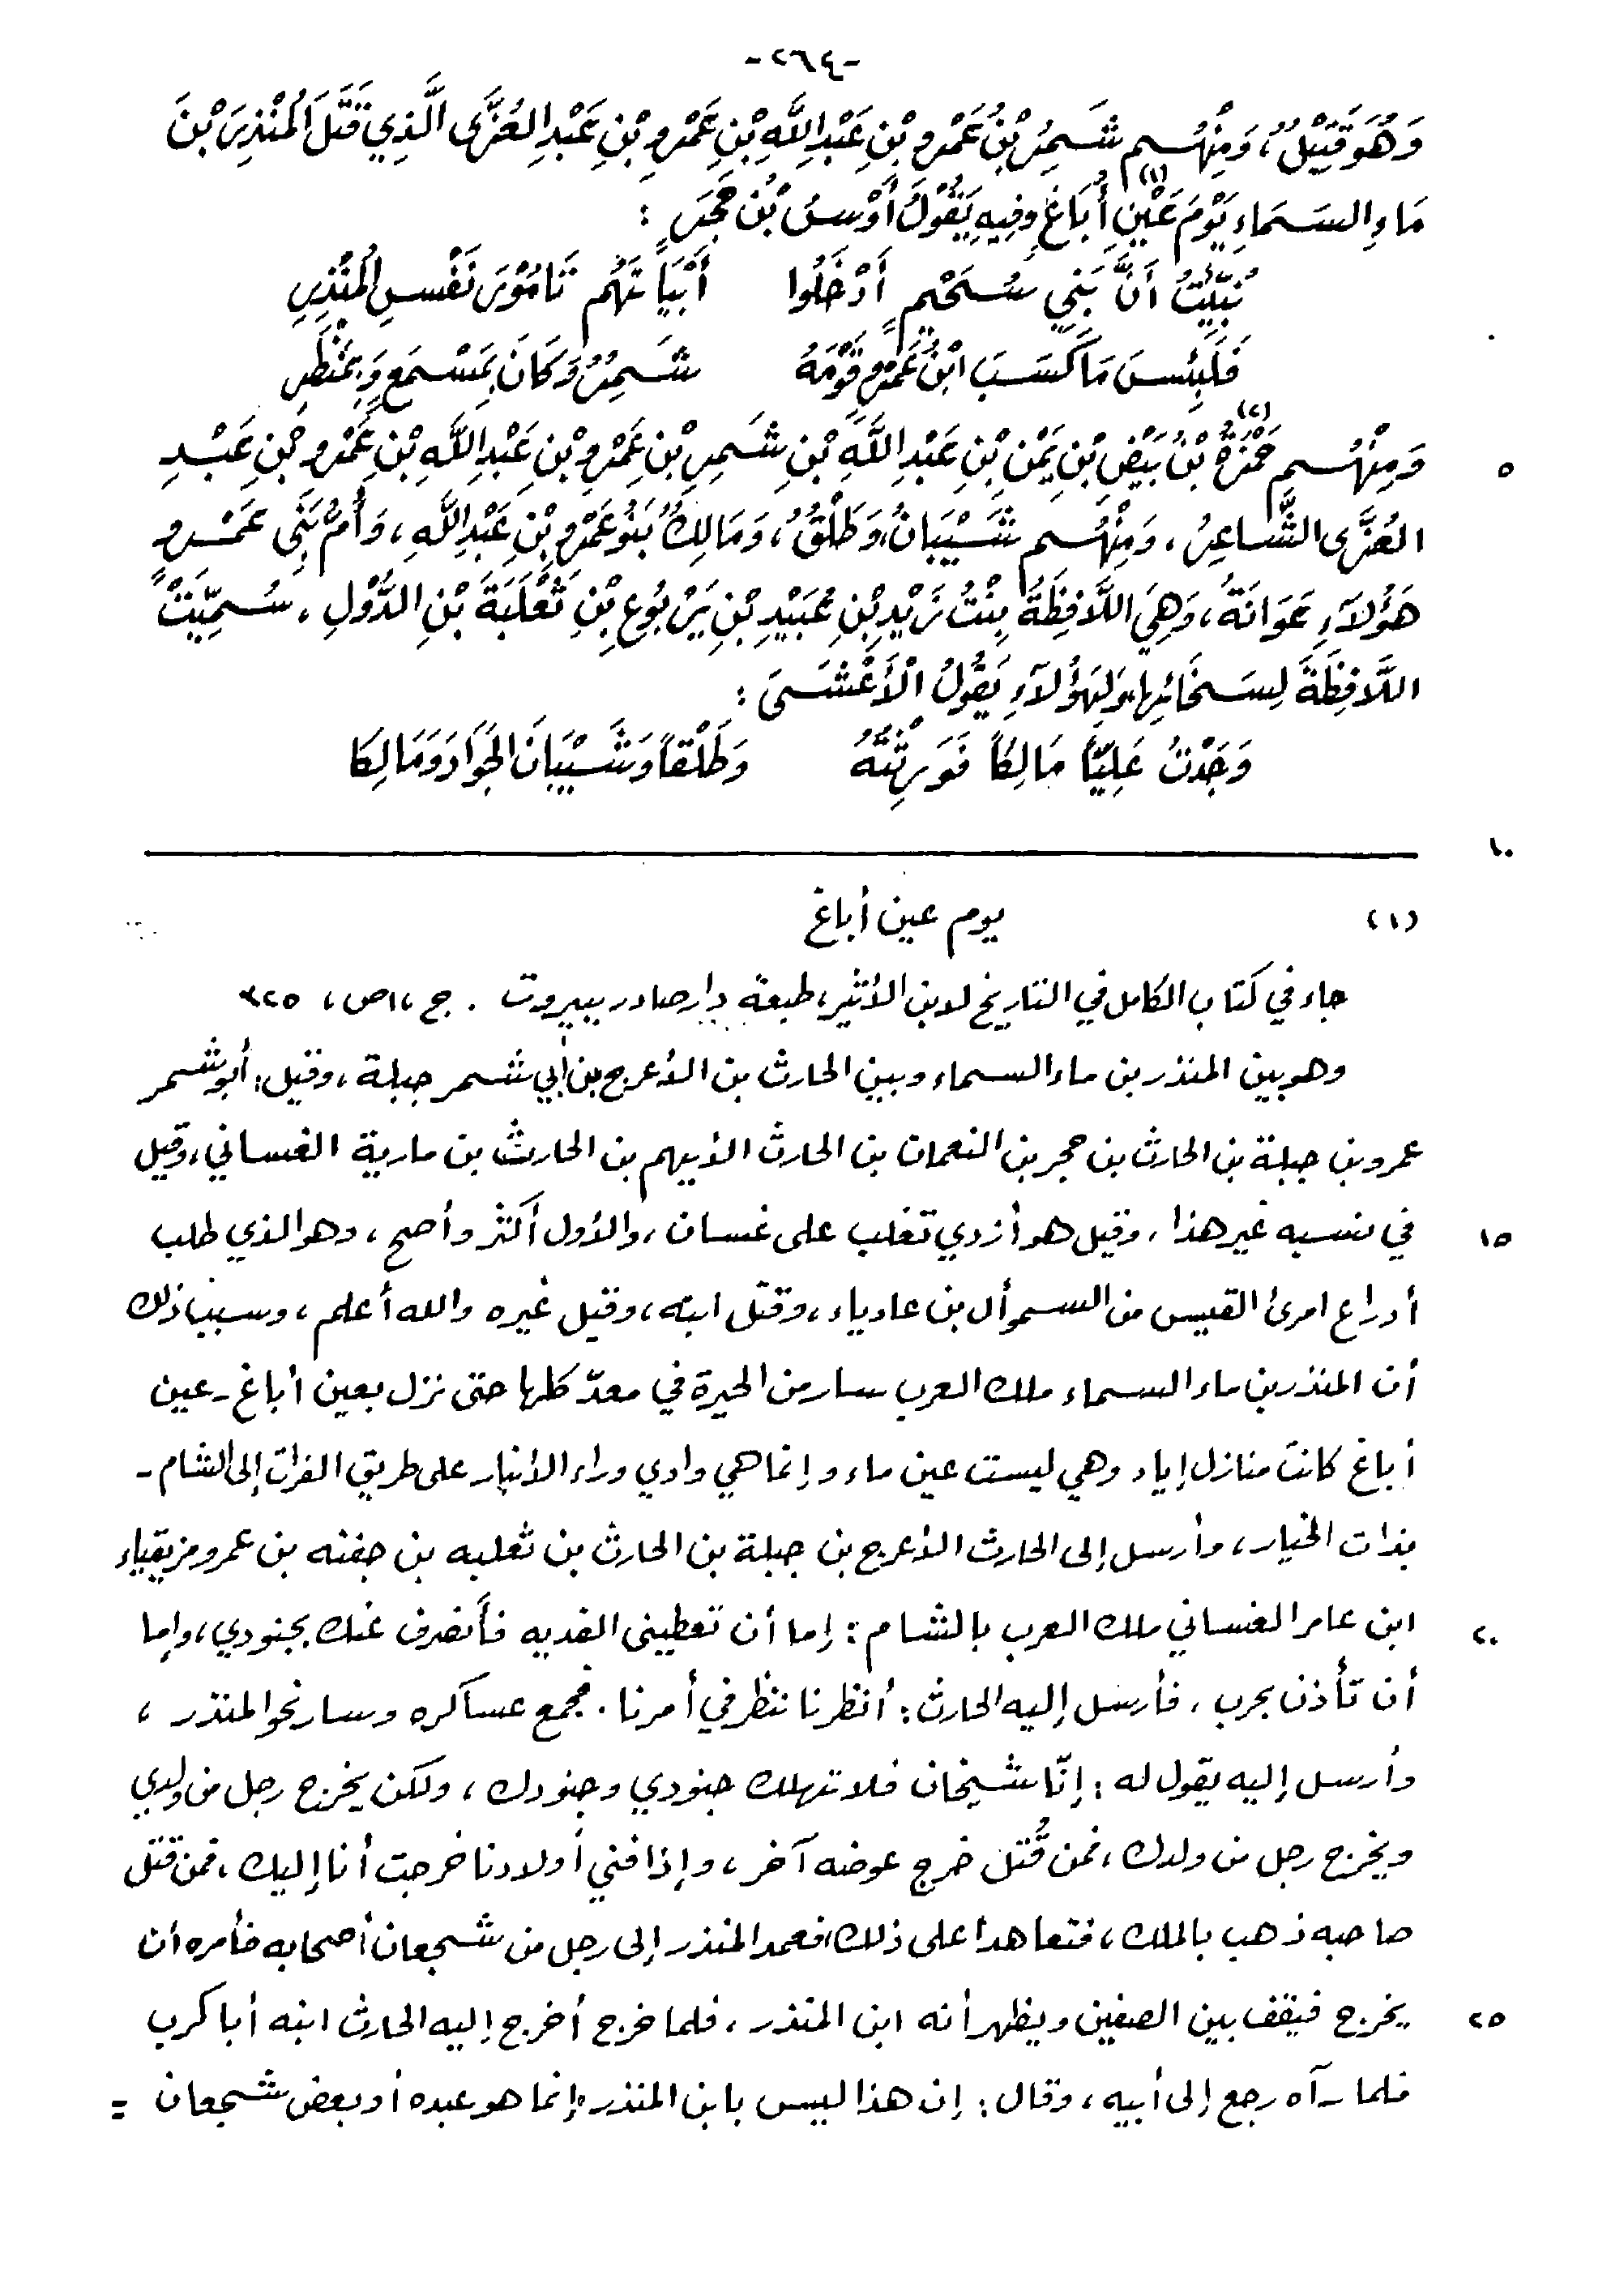 -٢٦٤-
وَهُوَ قَتِيْلٌ، وَمِنْهُم شَمِرُ بْنُ عَمْرِو بْنِ عَبْدِ اللَّهِ بْنِ عَمْرِو بْنِ عَبْدِ العُزَّى الَّذِي قَتَلَ المُنْذِرَ بْنَ
مَاءِ السَمَاءِ يَوْمَ عَيْنِ أُبَاغٍ (١) وفِيهِ يَقُولُ أَوْسُ بْنُ حَجَرٍ :
نُبِّئْتُ أَنَّ بَنِي سُحَيْمٍ أَدْخَلُوا    أَبْيَاتَهُم تَامُوْرَ نَفْسِ المُنْذِرِ
فَلَبِئْسَ مَا كَسَبَ ابْنُ عَمْرٍو قَوْمَهُ    شَمِرٌ وَكَانَ بِمَسْمَعٍ وَبِمَنْظَرِ
٥ وَمِنْهُم حَمْزَةُ (٢) بْنُ بَيْضِ بْنِ يَمْنِ بْنِ عَبْدِ اللَّهِ بْنِ شَمِرِ بْنِ عَمْرِو بْنِ عَبْدِ اللَّهِ بْنِ عَمْرِو بْنِ عَبْدِ
العُزَّى الشَّاعِرُ، وَمِنْهُم شَيْبَانُ، وَطَلْقٌ، وَمَالِكٌ بَنُو عَمْرِو بْنِ عَبْدِ اللَّهِ، وَأُمُّ بَنِي عَمْرٍو
هَؤُلَاءِ عَوَانَةُ، وَهِيَ اللَّافِظَةُ بِنْتُ زَيْدِ بْنِ عُبَيْدِ بْنِ يَرْبُوعِ بْنِ ثَعْلَبَةَ بْنِ الدُّوْلِ، سُمِّيَتْ
اللَّافِظَةَ لِسَخَائِهَا، وَلِهَؤُلَاءِ يَقُوْلُ الْأَعْشَى :
وَجَدْتُ عَلِيّاً مَالِكاً فَوَرِثْتَهُ    وَطَلْقاً وَشَيْبَانَ الجَوَادَ وَمَالِكَا
١٠
(١) يوم عين أباغ
جاء في كتاب الكامل في التاريخ لابن الأثير، طبعة دار صادر ببيروت . ج ١، ص، ٣٢٥
وهو بين المنذر بن ماء السماء وبين الحارث بن الأعرج بن أبي شمر جبلة، وقيل: أبو شمر
عمرو بن جبلة بن الحارث بن حجر بن النعمان بن الحارث الأيهم بن الحارث بن مارية الغساني، وقيل
١٥ في نسبه غير هذا، وقيل هو أزدي تغلب على غسان، والأول أكثر وأصح، وهو الذي طلب
أدراع امرئ القيس من السموأل بن عادياء، وقتل ابنه، وقيل غيره والله أعلم، وسبب ذلك
أن المنذر بن ماء السماء ملك العرب سار من الحيرة في معدّ كلها حتى نزل بعين أباغ - عين
أباغ كانت منازل إياد وهي ليست عين ماء وإنما هي وادي وراء الأنبار على طريق الفرات إلى الشام -
بذات الخيار، وأرسل إلى الحارث الأعرج بن جبلة بن الحارث بن ثعلبه بن جفنه بن عمرو مزيقياء
٢٠ ابن عامر الغساني ملك العرب بالشام : إما أن تعطيني الفديه فأنصرف عنك بجنودي، وإما
أن تأذن بحرب، فأرسل إليه الحارث : أنظرنا ننظر في أمرنا . فجمع عساكره وسار نحو المنذر ،
وأرسل إليه يقول له : إنّا شيخان فلا تهلك جنودي وجنودك، ولكن يخرج رجل من ولدي
ويخرج رجل من ولدك، فمن قُتل خرج عوضه آخر، وإذا فني أولادنا خرجت أنا إليك، فمن قتل
صاحبه ذهب بالملك، فتعاهدا على ذلك، فعمد المنذر إلى رجل من شجعان أصحابه فأمره أن
٢٥ يخرج فيقف بين الصفين ويظهر أنه ابن المنذر، فلما خرج أخرج إليه الحارث ابنه أبا كرب
فلما رآه رجع إلى أبيه، وقال : إن هذا ليس بابن المنذر، إنما هو عبده أو بعض شجعان =